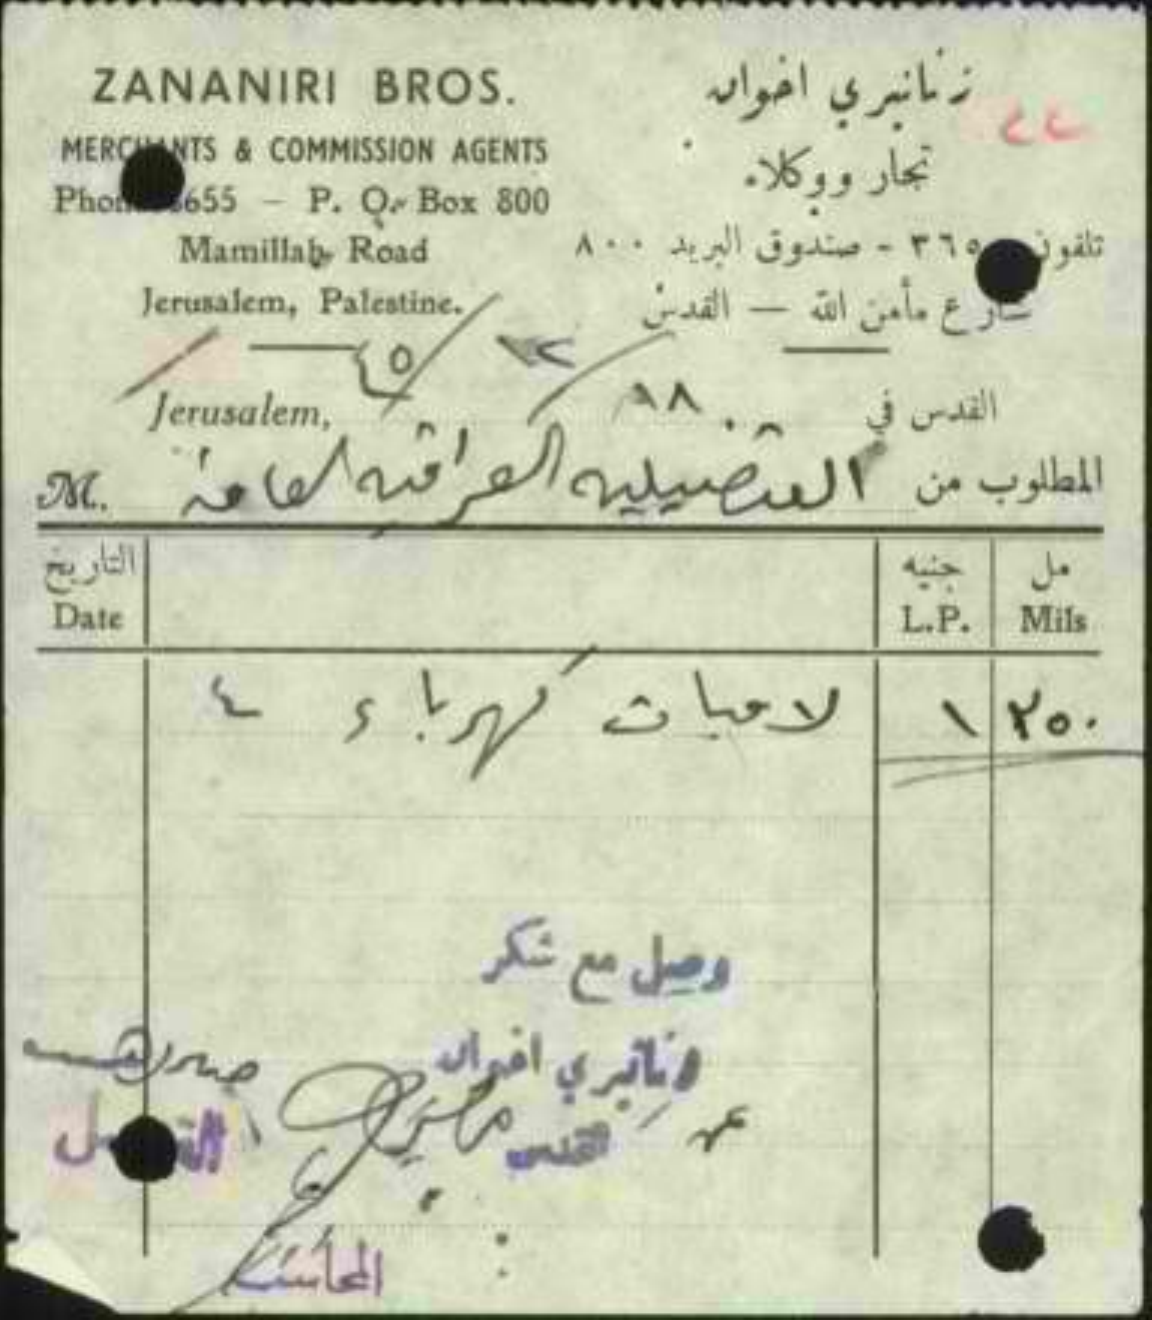 ZANANIRI BROS.
MERCHANTS & COMMISSION AGENTS
Phone 3655 – P. O. Box 800
Mamillah Road
Jerusalem, Palestine.
زنانيري اخوان
تجار ووكلاء
تلفون ٣٦٥٥ - صندوق البريد ٨٠٠
شارع مأمن الله — القدس
٤٤
Jerusalem,
القدس في ١٨
٤٥
المطلوب من القنصلية العراقية العامة
M.
التاريخ
Date
جنيه
L.P.
مل
Mils
٤ لامبات كهرباء
١ ٢٥٠
وصل مع شكر
زنانيري اخوان
عن
القدس
القنصل
المحاسب